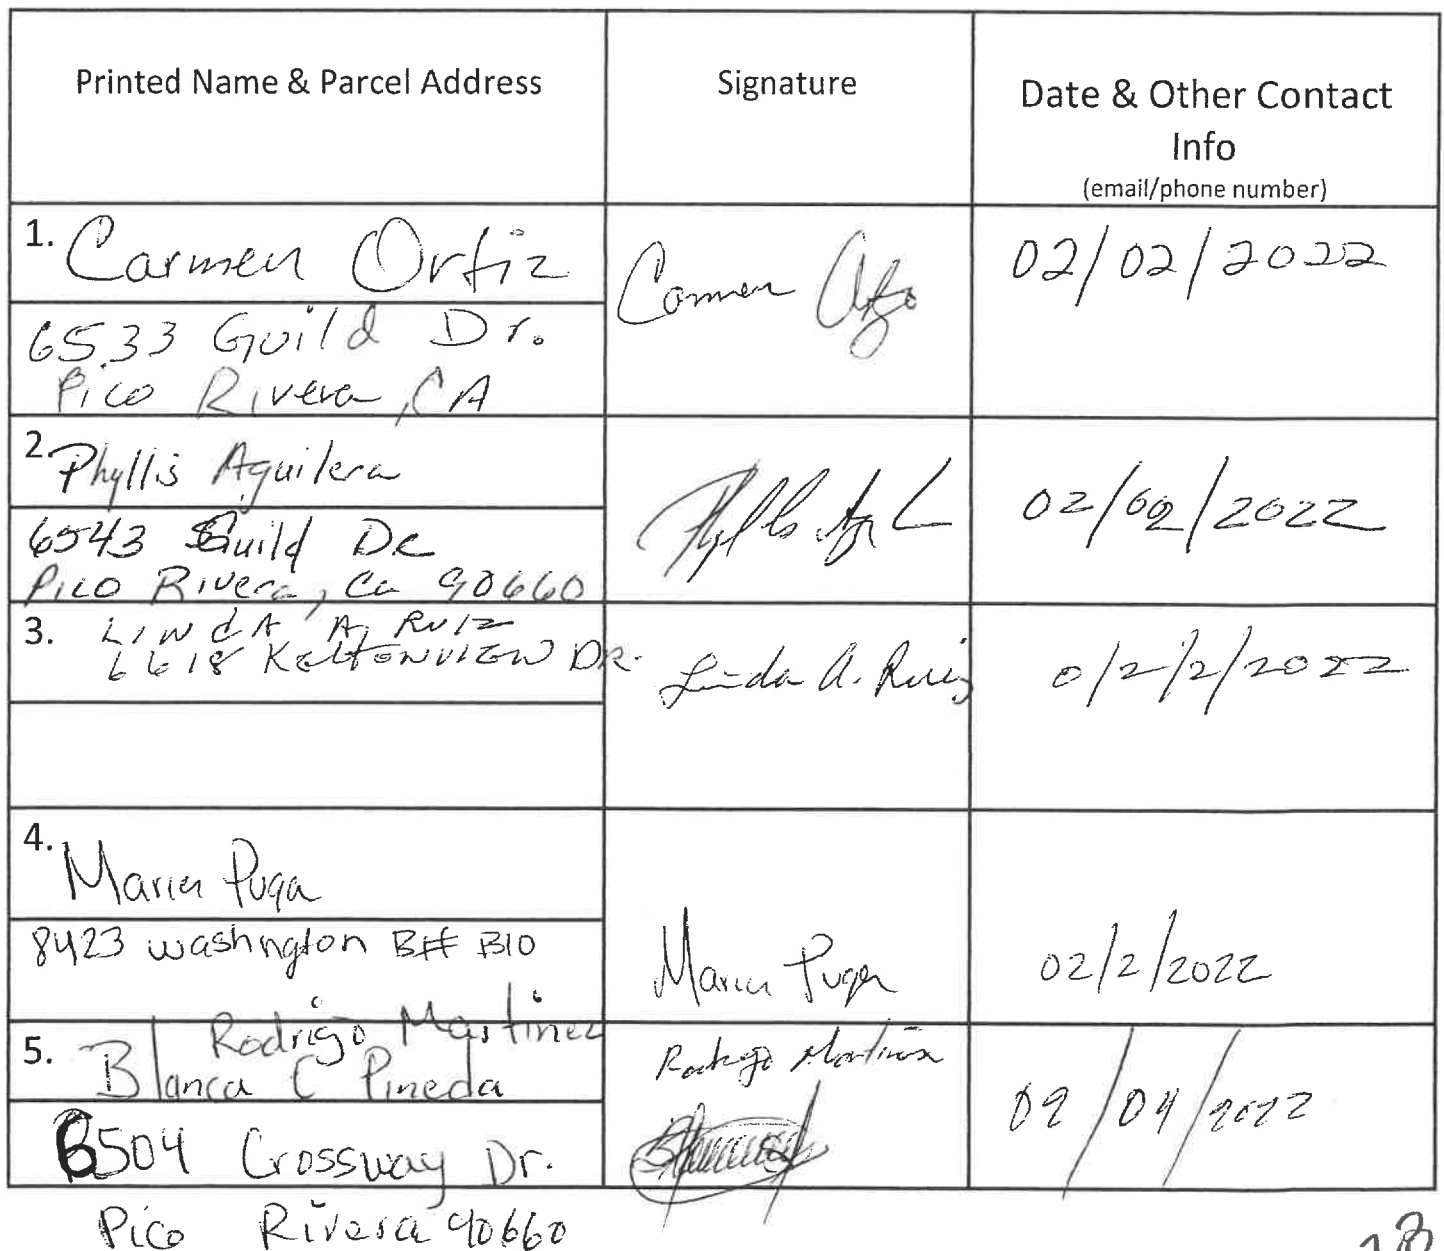 Printed Name & Parcel Address
Signature
Date & Other Contact
Info
(email/phone number)
1. Carmen Ortiz
6533 Guild Dr.
Pico Rivera, CA
Carmen
02/02/2022
2. Phyllis Aguilera
6543 Guild Dr
Pico Rivera, Ca 90660
02/02/2022
3. LINdA A. RUIZ
6618 KELTONVIEW DR.
Linda A. Ruiz
0/2/2/2022
4. Maria Puga
8423 washngton B# B10
Maria Puga
02/2/2022
Rodrigo Martinez
5. Blanca C Pineda
6504 Crossway Dr.
Pico Rivera 90660
Rodrigo Martinez
02/04/2022